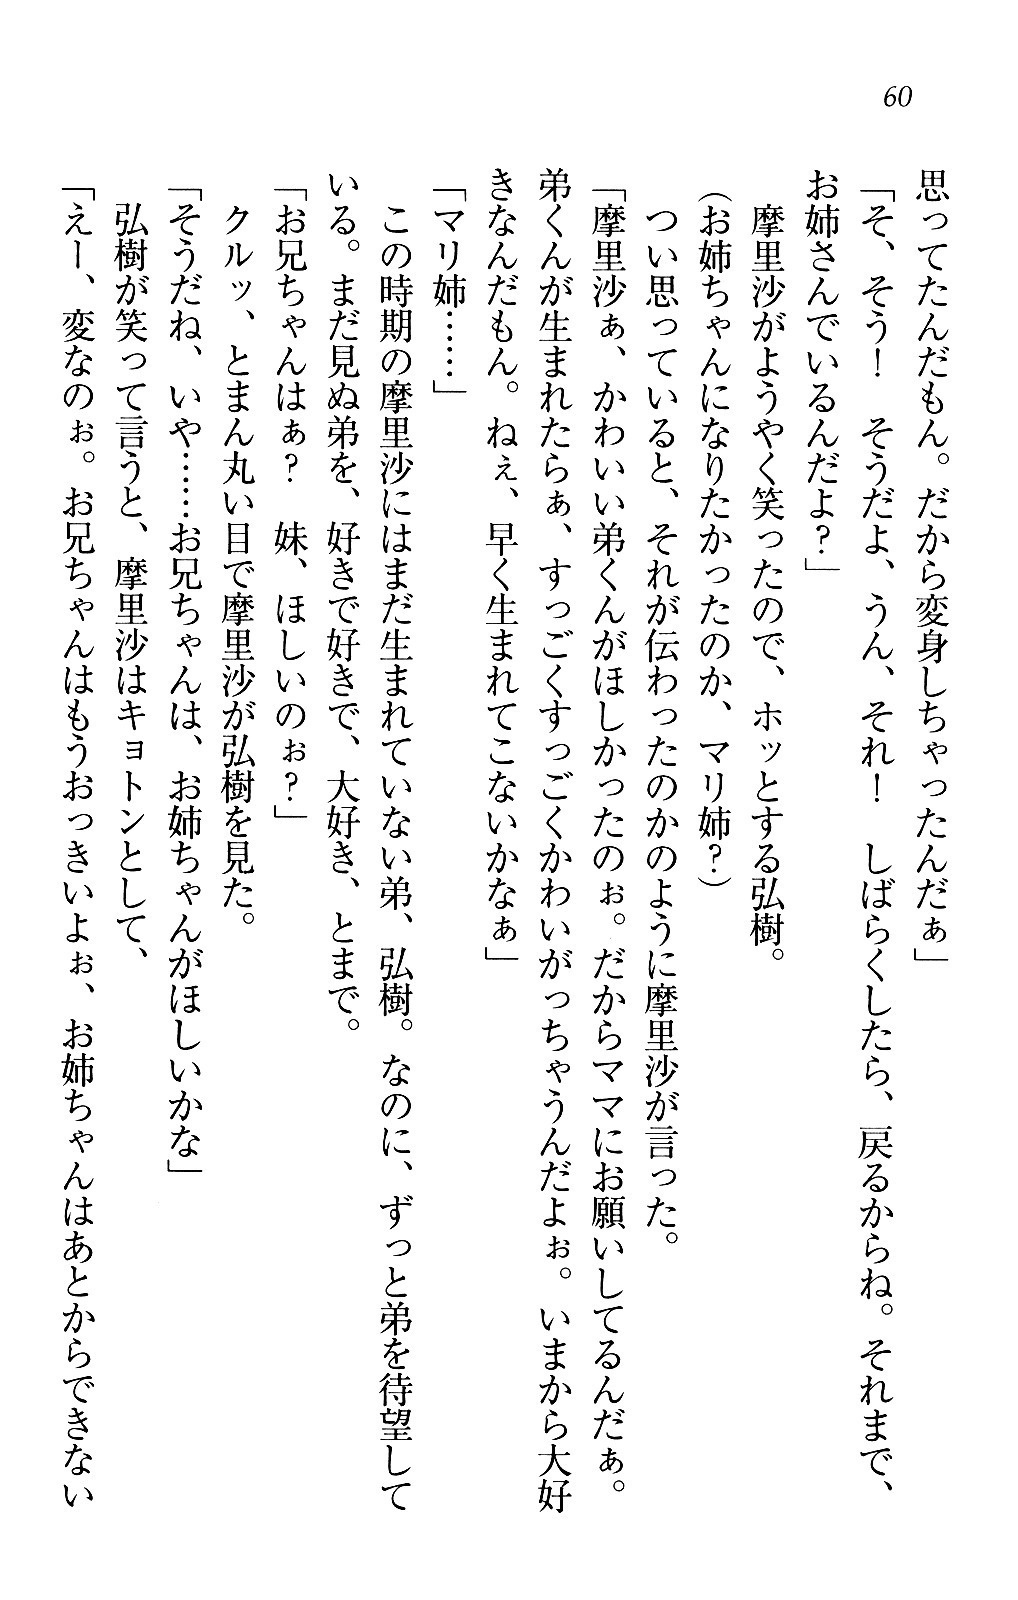 60
思ってたんだもん。だから変身しちゃったんだぁ」
「そ、そう！　そうだよ、うん、それ！　しばらくしたら、戻るからね。それまで、
お姉さんでいるんだよ？」
　摩里沙がようやく笑ったので、ホッとする弘樹。
（お姉ちゃんになりたかったのか、マリ姉？）
　つい思っていると、それが伝わったのかのように摩里沙が言った。
「摩里沙ぁ、かわいい弟くんがほしかったのぉ。だからママにお願いしてるんだぁ。
弟くんが生まれたらぁ、すっごくすっごくかわいがっちゃうんだよぉ。いまから大好
きなんだもん。ねぇ、早く生まれてこないかなぁ」
「マリ姉……」
　この時期の摩里沙にはまだ生まれていない弟、弘樹。なのに、ずっと弟を待望して
いる。まだ見ぬ弟を、好きで好きで、大好き、とまで。
「お兄ちゃんはぁ？　妹、ほしいのぉ？」
　クルッ、とまん丸い目で摩里沙が弘樹を見た。
「そうだね、いや……お兄ちゃんは、お姉ちゃんがほしいかな」
　弘樹が笑って言うと、摩里沙はキョトンとして、
「えー、変なのぉ。お兄ちゃんはもうおっきいよぉ、お姉ちゃんはあとからできない